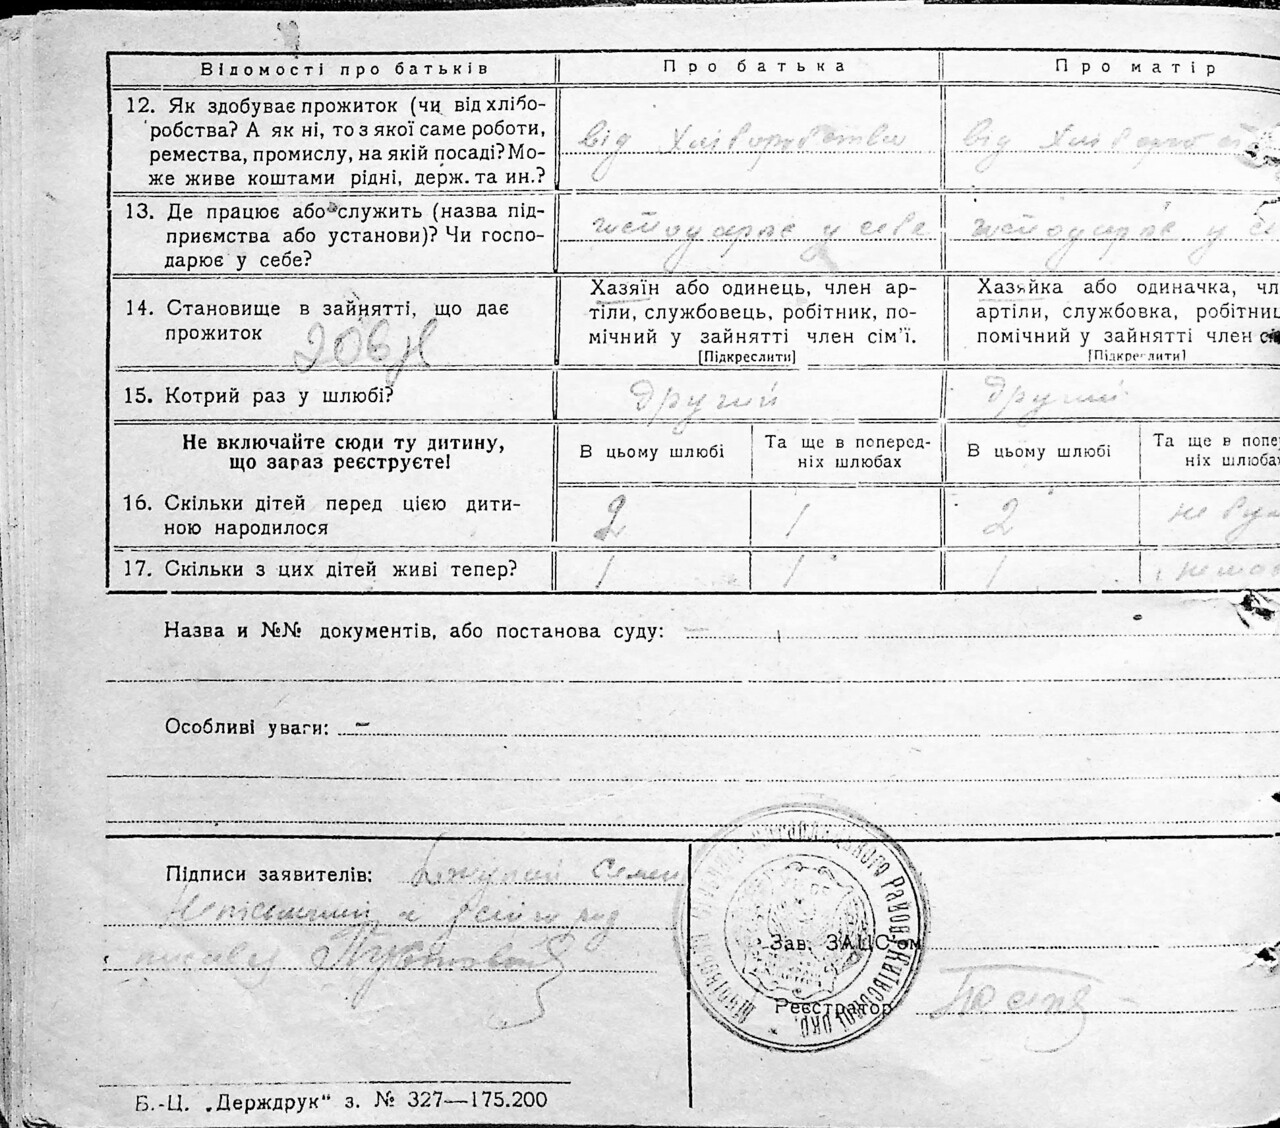 Відомості про батьків
Про батька
Про матір
12. Як здобуває прожиток (чи від хлібо-
робства? А як ні, то з якої саме роботи,
ремества, промислу, на якій посаді? Мо-
же живе коштами рідні, держ. та ин.?
від хліборобства
від хлібороб
13. Де працює або служить (назва під-
приємства або установи)? Чи госпо-
дарює у себе?
господарює у себе
господарює у се
14. Становище в зайнятті, що дає
прожиток
Хазяїн або одинець, член ар-
тіли, службовець, робітник, по-
мічний у зайнятті член сім’ї.
[Підкреслити]
Хазяйка або одиначка, чл
артіли, службовка, робітниц
помічний у зайнятті член сі
[Підкреслити]
15. Котрий раз у шлюбі?
другий
другий
Не включайте сюди ту дитину,
що зараз реєструєте!
В цьому шлюбі
Та ще в поперед-
ніх шлюбах
В цьому шлюбі
Та ще в попе
ніх шлюба
16. Скільки дітей перед цією дити-
ною народилося
2
1
2
не бул
17. Скільки з цих дітей живі тепер?
1
1
1
нема
Назва и №№ документів, або постанова суду: —
Особливі уваги: —
Підписи заявителів: Семен
Неписьменний а
Зав. ЗАЦС’ом
Реєстратор
Київської Окр.
Б.-Ц. „Держдрук“ з. № 327—175.200